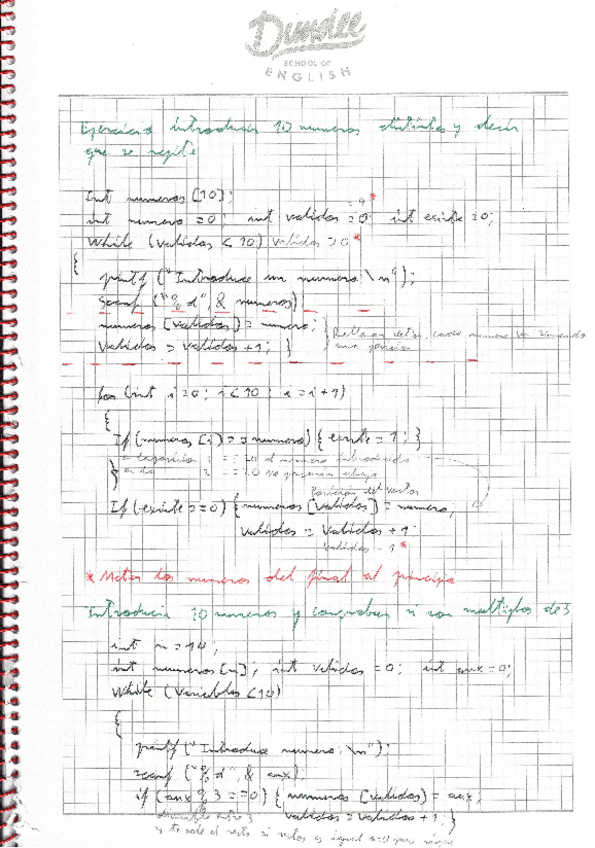 Dundee
SCHOOL OF
ENGLISH
Ejercicio introducir 10 numeros distintos y decir
que se repite
Int numeros [10];
= 9 *
int numero = 0; int validos = 0; int existe = 0;
While (validos < 10) validos > 0 *
{
printf ("Introduce un numero \n");
Scanf ("%d", & numeros)
numeros [validos] = numero;
validos = validos + 1; }
Rellenar vector, cada numero va
una posicion
for (int i = 0; i < 10; i = i + 1)
{
If (numeros [i] == numero) { existe = 1; }
}
el numero introducido
Posicion del vector
If (existe == 0) { numeros [validos] = numero;
validos = validos + 1
validos - 1 *
* Meter los numeros del final al principio
introducir 10 numeros y comprobar si son multiplos de 3
int n = 10;
int numeros [n]; int validos = 0; int aux = 0;
While (Variables < 10)
{
printf ("Introduce numero \n");
scanf ("%d", & aux);
if (aux % 3 == 0) { numeros [validos] = aux;
divisible entre 3
validos = validos + 1; }